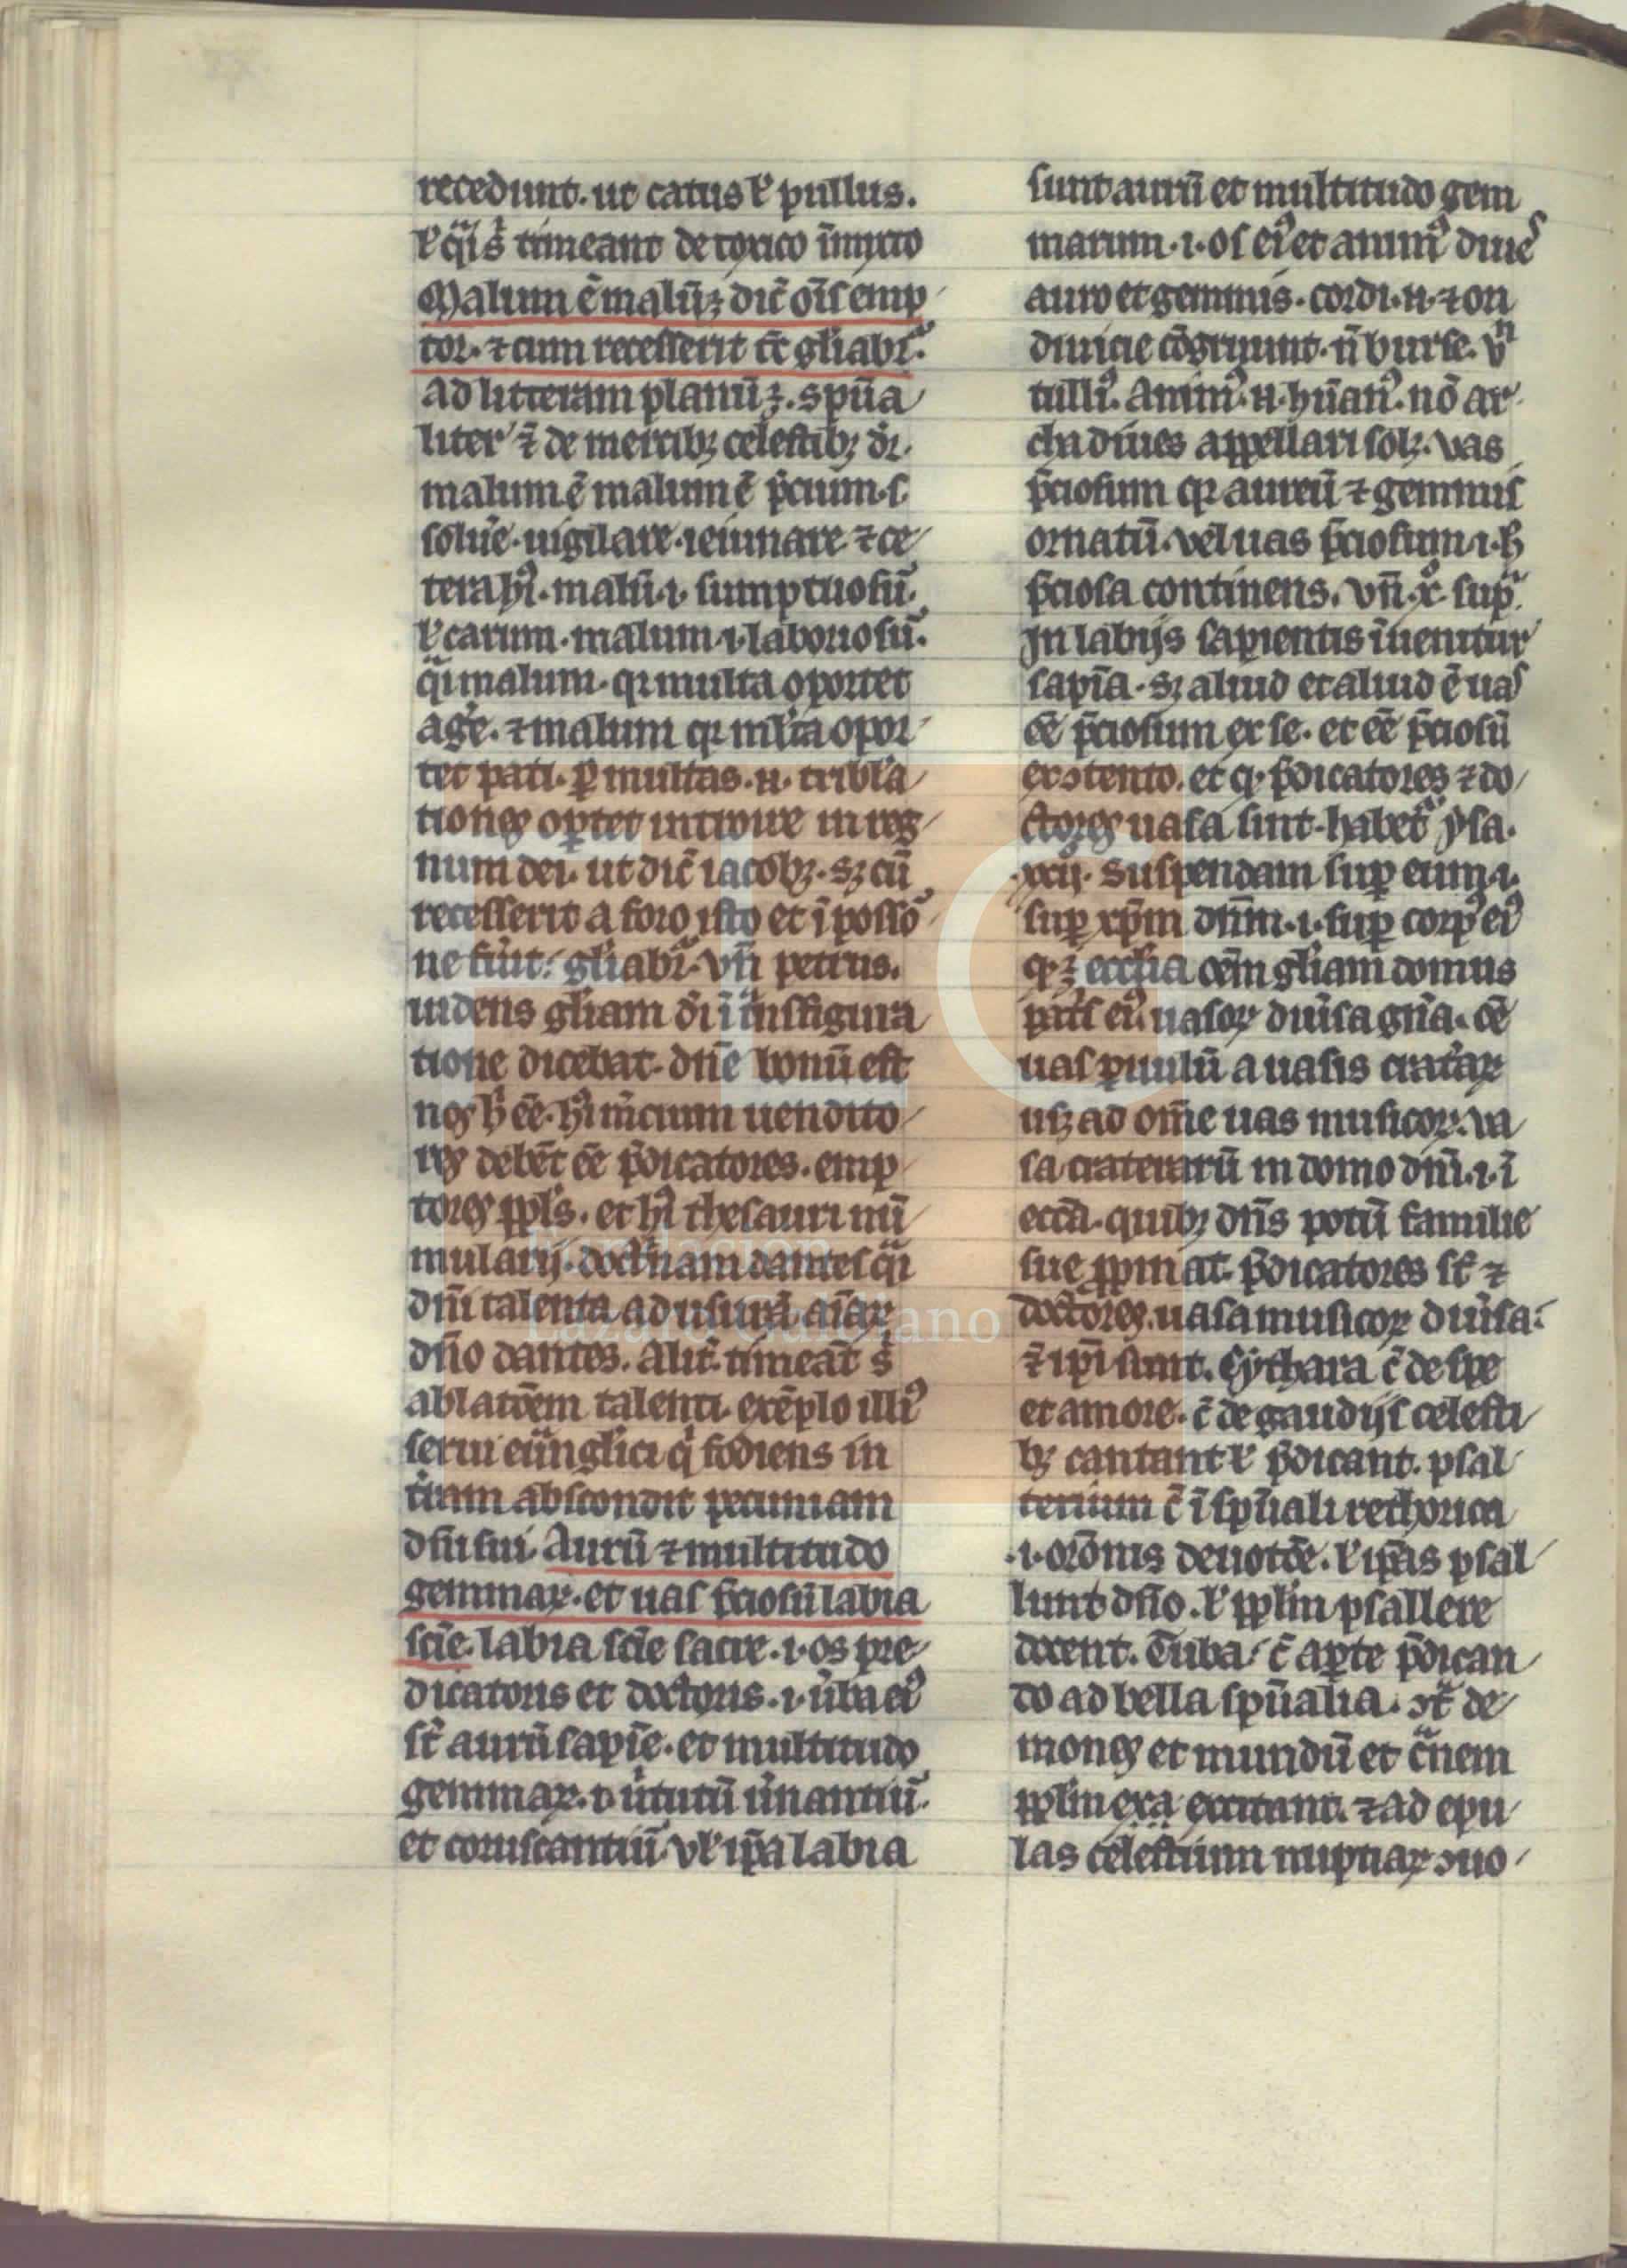 recedunt. ut catus ł pullus.
ł q̈iṡ timeant de toxico īmixto
Malum ē malūꝫ dic̄ oīs emp
tor. ⁊ cum recesserit tc̄ gl̄iabr̄.
ad litteram planū ꝫ. spūa
liter ⁊̄ de mercibꝫ celestibꝫ dr̄.
malum ē malum ē p̄cium. s.
solūe. uigilare. ieiunare ⁊ ce
tera hꝰi. malū. i. sumptuosū.
ł carum. malum. i. laboriosū.
q̈i malum. qꝛ multa oportet
aḡe. ⁊ malum qꝛ ml̄ta opor
tet pati. ꝑ multas. n. tribl̄a
tiones oꝑtet introire in reg
num dei. ut dic̄ iacobꝫ. sꝫ cū
recesserit a foro isto et ī posso
ne fūit. gl̄iabr̄. vn̄ petrus.
uidens gl̄iam dn̄i ī t̄nsfigura
tione dicebat. dn̄e bonū est
nos h̄ ēe. hꝰi m̄cium uendito
res debēt ēe p̄dicatores. emp
tores ppl̄s. et hꝰi thesauri nū
mularij. doct̄nam dantes q̈i
dn̄i talenta ad usurā aīaꝝ
dn̄o dantes. alit̄. timeāt s̄
ablatōem talenti. exēplo illiꝰ
serui euūglici q̄ fodiens in
t̄ram abscondit pecuniam
dn̄i sui. Aurū ⁊ multitudo
gemmaꝝ. et uas p̄ciosū labia
scīe. labia scīe sacre. i. os pre
dicatoris et doctoris. i. ūba eiꝰ
st̄ aurū sapīe. et multitudo
gemmaꝝ. i. ūtutū ūnantiū.
et coruscantiū. vł ip̄a labia
sunt aurū et multitudo gem
marum. i. os eiꝰ et animꝰ diues
auro et gemmis. cordi. n. ⁊ ori
diuicie cōgruunt. n̄ burse. vn̄
tulliꝰ. Animꝰ. n. hūanꝰ. nō ar
cha diues appellari solꝫ. vas
p̄ciosum qꝛ aureū ⁊ gemmis
ornatū. vel uas p̄ciosum. i. h̄
p̄ciosa continens. vn̄. x̊. sup̄.
In labijs sapientis īuenitur
sapīa. sꝫ aliud et aliud ē uas
ēe p̄ciosum ex se. et ēe p̄ciosū
ex contento. et q̇. p̄dicatores ⁊ do
ctores uasa sint. habet̄ ysa.
xxij. Suspendam suꝑ eum. i.
suꝑ xp̄m dn̄m. i. suꝑ corpꝰ eiꝰ
qꝫ ecclīa oēm gl̄iam domus
pat̄s eiꝰ. uasoꝝ diūsa gn̄a. oē
uas ꝑuulū a uasis crat̄aꝝ
usꝫ ad om̄e uas musicoꝝ. va
sa craterarū in domo dn̄i. i. ī
ecc̄a. quibꝫ dn̄s potū familie
sue ppinat. p̄dicatores st̄ ⁊
doctores. uasa musicoꝝ diūsa.
⁊̄ ip̄i sunt. Cythara c̄ de spe
et amore. c̄ de gaudijs celesti
bꝫ cantant ł p̄dicant. psal
terium c̄ ī spūali rethorica
.i. orōnis deuotōe. ł ip̄as psal
lunt dn̄o. ł ppl̄m psallere
docent. Tuba. c̄ aꝑte p̄dican
do ad bella spūalia. ꝯt̄ de
mones et mundū et c̄nem
ppl̄m exa excitant. ⁊ ad epu
las celestium nuptiaꝝ ꝯuo
Fundación
Lázaro Galdiano